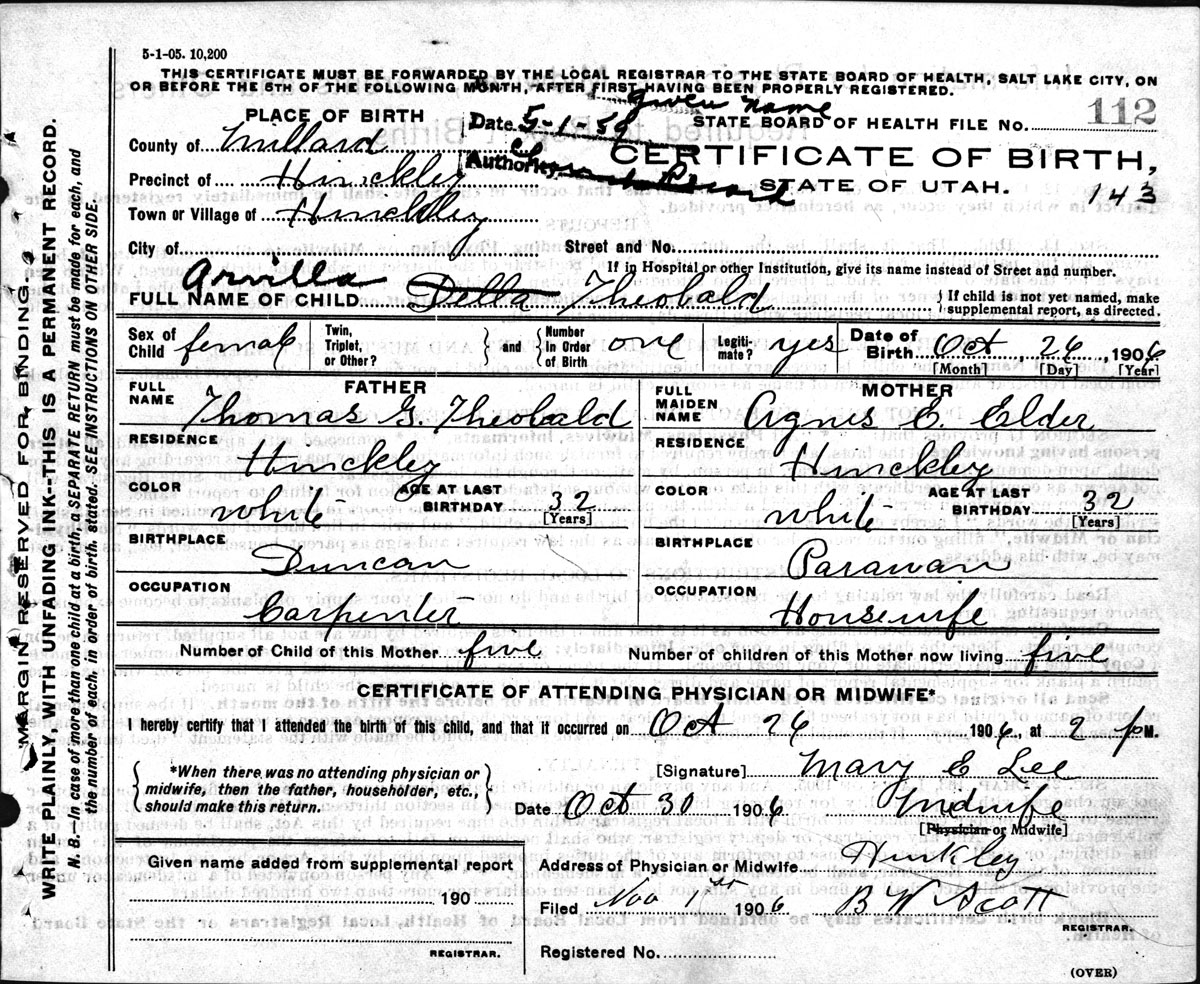 5-1-05. 10,200
THIS CERTIFICATE MUST BE FORWARDED BY THE LOCAL REGISTRAR TO THE STATE BOARD OF HEALTH, SALT LAKE CITY, ON
OR BEFORE THE 5TH OF THE FOLLOWING MONTH, AFTER FIRST HAVING BEEN PROPERLY REGISTERED.
given name
PLACE OF BIRTH
Date 5-1-59
STATE BOARD OF HEALTH FILE No. 112
County of Millard
Authority Church Record
CERTIFICATE OF BIRTH,
STATE OF UTAH.
143
Precinct of Hinckley
Town or Village of Hinckley
City of
Street and No.
If in Hospital or other Institution, give its name instead of Street and number.
FULL NAME OF CHILD Arvilla Della Theobald
If child is not yet named, make
supplemental report, as directed.
Sex of Child female
Twin, Triplet, or Other?
and
Number In Order of Birth one
Legiti-mate? yes
Date of Birth Oct, 26, 1906
[Month] [Day] [Year]
FATHER
FULL NAME Thomas G. Theobald
RESIDENCE Hinckley
COLOR white
AGE AT LAST BIRTHDAY 32
[Years]
BIRTHPLACE Duncan
OCCUPATION Carpenter
MOTHER
FULL MAIDEN NAME Agnes E. Elder
RESIDENCE Hinckley
COLOR white
AGE AT LAST BIRTHDAY 32
[Years]
BIRTHPLACE Parawan
OCCUPATION Housewife
Number of Child of this Mother five
Number of children of this Mother now living five
CERTIFICATE OF ATTENDING PHYSICIAN OR MIDWIFE*
I hereby certify that I attended the birth of this child, and that it occurred on Oct 26 1906, at 2 PM.
*When there was no attending physician or
midwife, then the father, householder, etc.,
should make this return.
[Signature] Mary E Lee
Date Oct 30 1906 Midwife
[Physician or Midwife]
Given name added from supplemental report
190
REGISTRAR.
Address of Physician or Midwife Hinkley
Filed Nov 1st 1906 B W Scott
REGISTRAR.
Registered No.
(OVER)
MARGIN RESERVED FOR BINDING.
WRITE PLAINLY, WITH UNFADING INK--THIS IS A PERMANENT RECORD.
N. B.--In case of more than one child at a birth, a SEPARATE RETURN must be made for each, and
the number of each, in order of birth, stated. SEE INSTRUCTIONS ON OTHER SIDE.